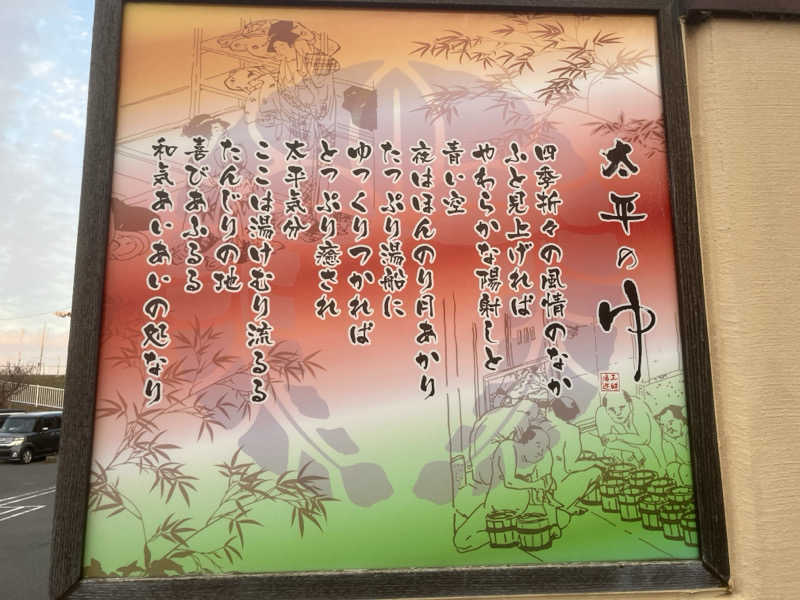 太平のゆ
四季折々の風情のなか
ふと見上げれば
やわらかな陽射しと
青い空
夜はほんのり月あかり
たっぷり湯船に
ゆっくりつかれば
とっぷり癒され
太平気分
ここは湯けむり流るる
たんじりの地
喜びあふるる
和気あいあいの処なり